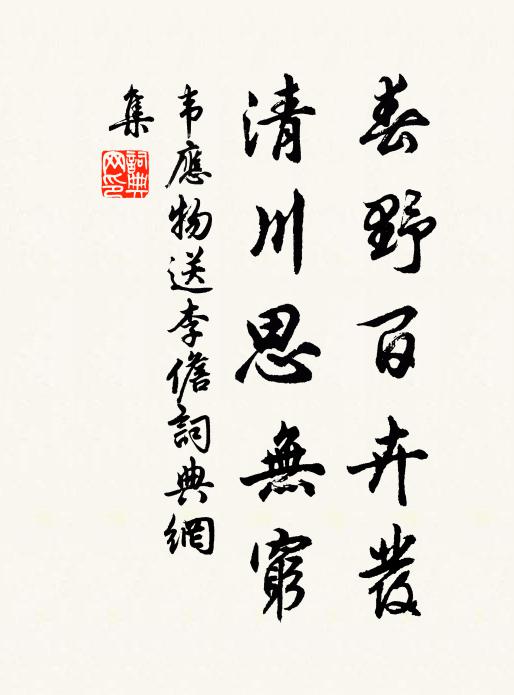 春野百卉發
清川思無窮
韦應物送李儋詞典網
集
詞典网印